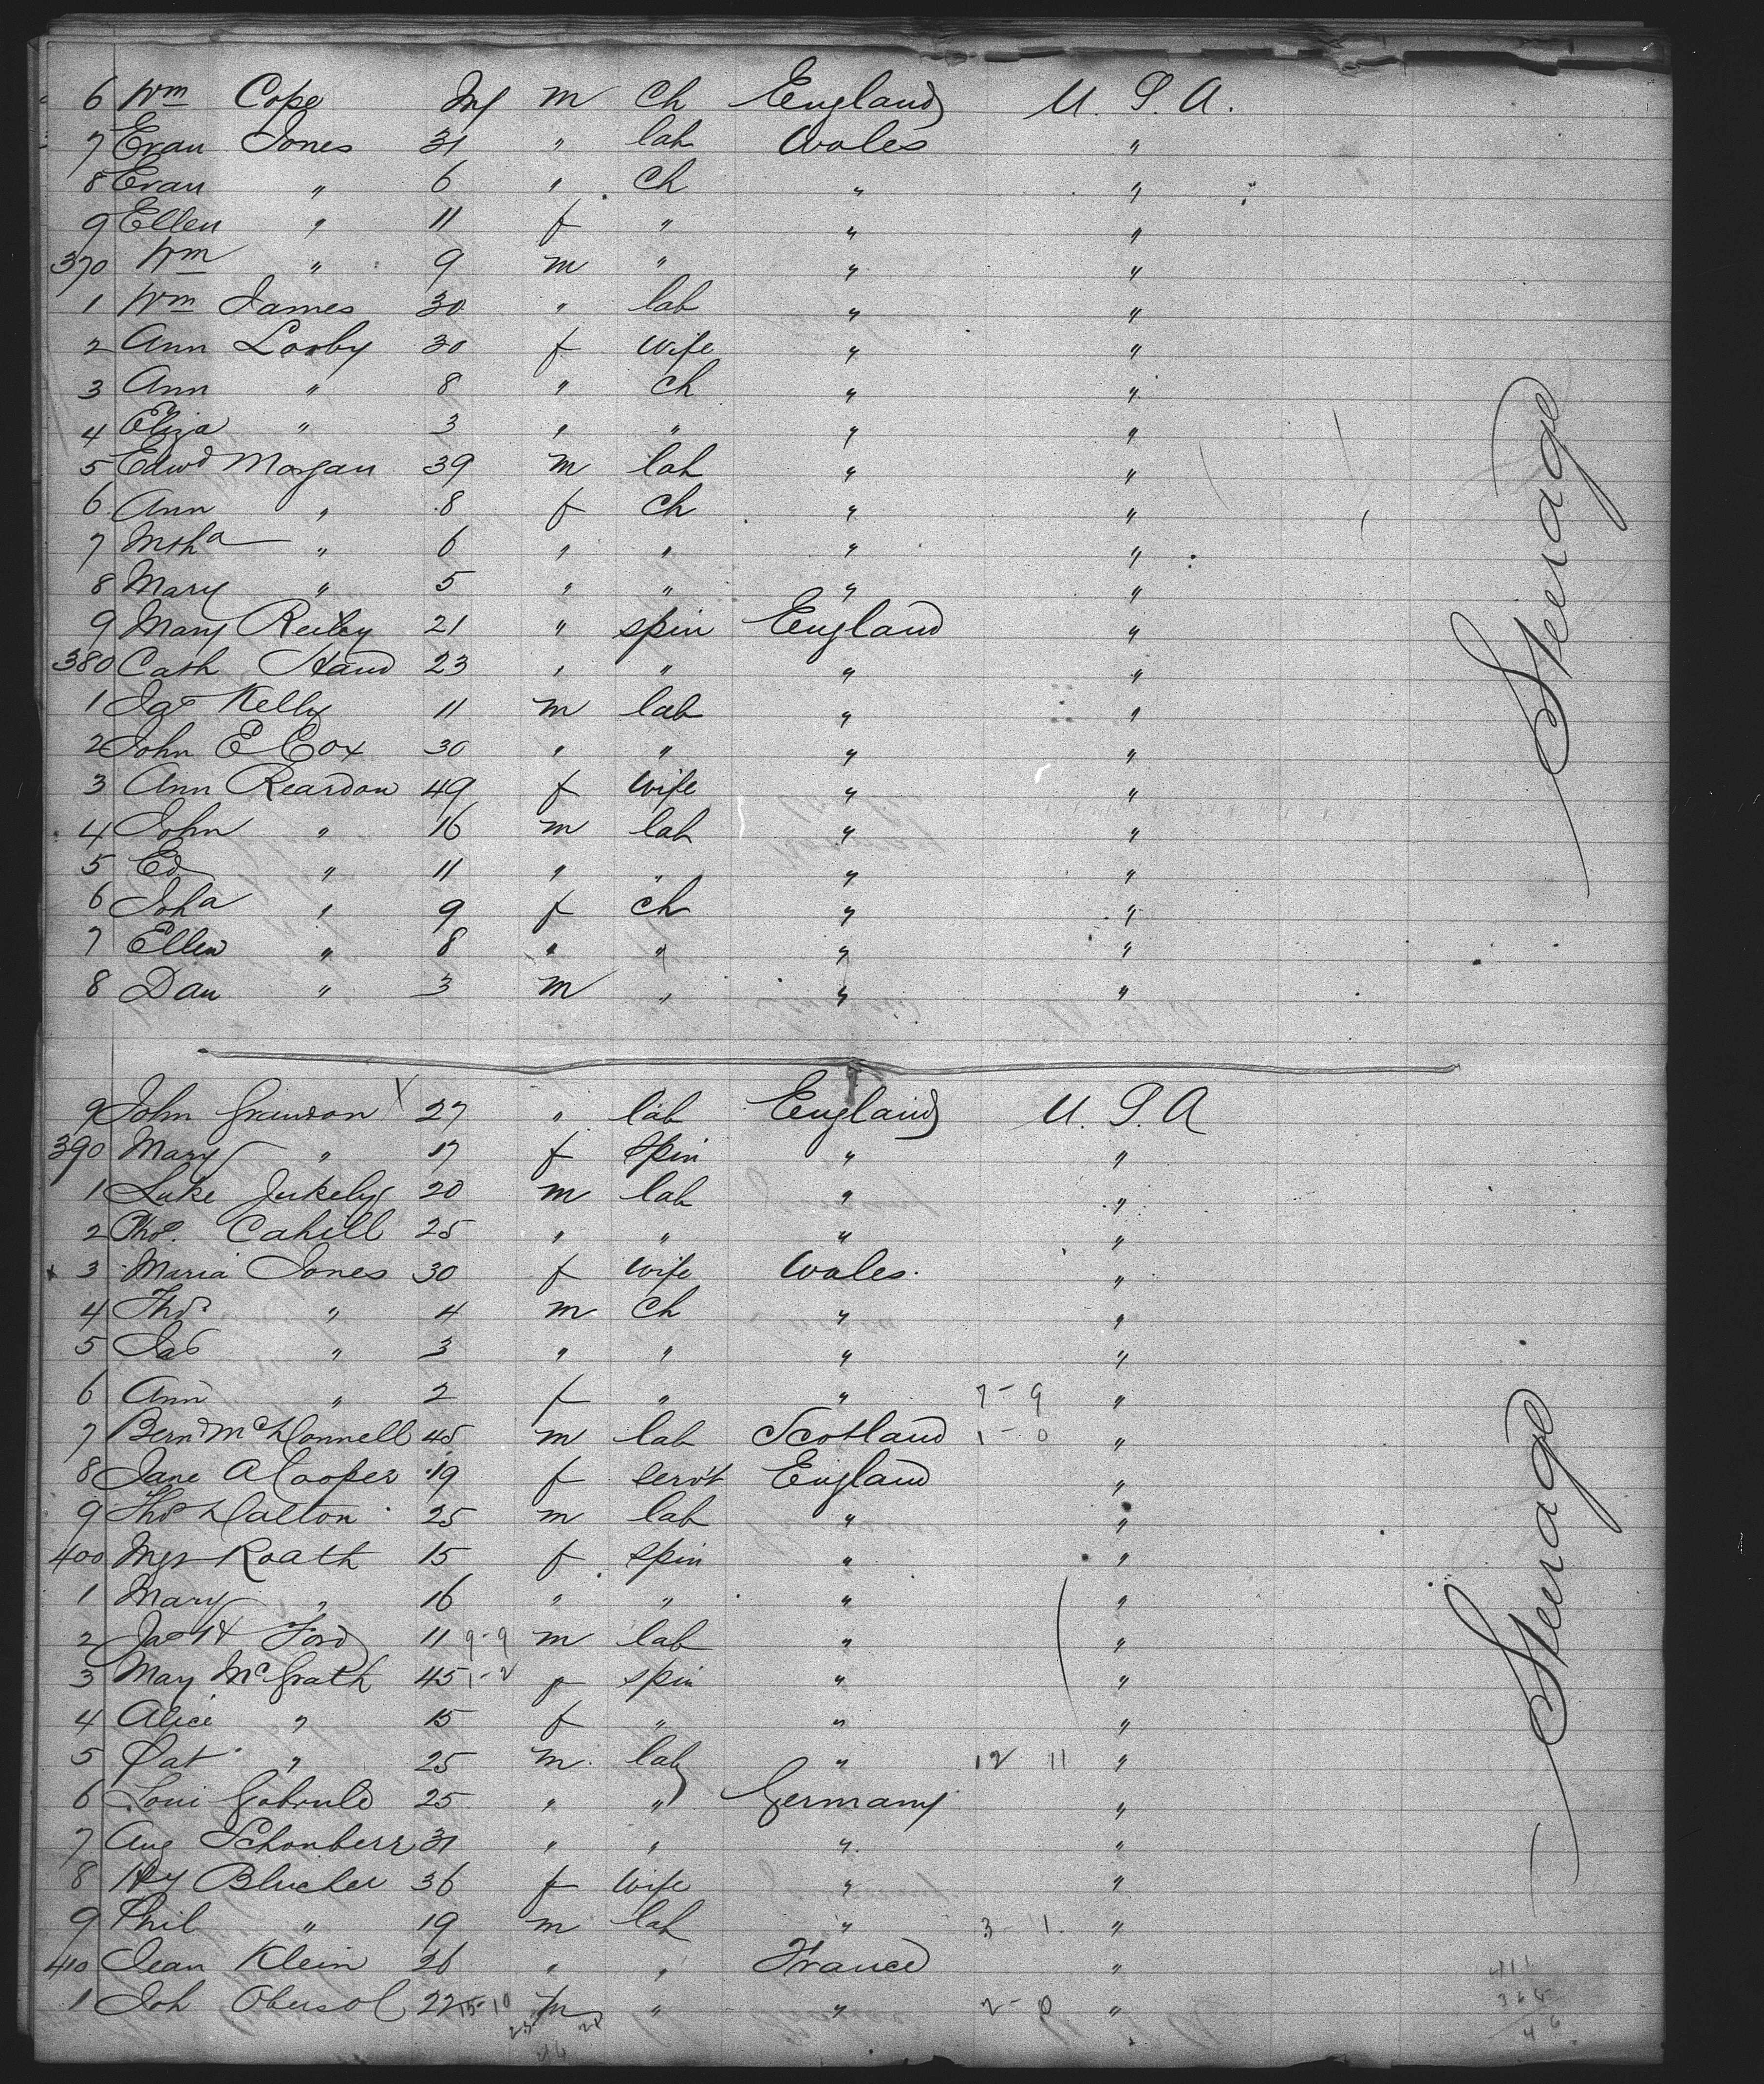 6 Wm Cope Inf m ch England U. S. A.
7 Evan Jones 31 " lab Wales "
8 Evan " 6 " ch " "
9 Ellen " 11 f " " "
370 Wm " 9 m " " "
1 Wm James 30 " lab " "
2 Ann Looby 30 f wife " "
3 Ann " 8 " ch " "
4 Eliza " 3 " " " "
5 Edwd Morgan 39 m lab " "
6 Ann " 8 f ch " "
7 " 6 " " " "
8 Mary " 5 " " " "
9 Mary Reiley 21 " spin England "
380 Cath Hand 23 " " " "
1 Kelly 11 m lab " "
2 John E Cox 30 " " " "
3 Ann Reardon 49 f wife " "
4 John " 16 m lab " "
5 Ed " 11 " " " "
6 Joha " 9 f ch " "
7 Ellen " 8 " " " "
8 Dan " 3 m " " "
Steerage
9 John 27 " lab England U. S. A
390 Mary " 17 f spin " "
1 Luke 20 m lab " "
2 Thos. Cahill 25 " " " "
3 Maria Jones 30 f wife Wales. "
4 Thos " 4 m ch " "
5 Jas " 3 " " " "
6 Ann " 2 f " " 7-9 "
7 Bernd McDonnell 45 m lab Scotland 1-0 "
8 Jane A Cooper 19 f servt England "
9 Thos Dalton 25 m lab " "
400 Mgr Roath 15 f spin " "
1 Mary " 16 " " " "
2 Jas H Ford 11 9-9 m lab " "
3 Mary McGrath 45 1-2 f spin " "
4 Alice " 15 f " " "
5 Pat " 25 m lab " 12 11 "
6 25 " " Germany "
7 Aug Schonherr 31 " " " "
8 Hy Blucher 36 f wife " "
9 Phil " 19 m lab " 3-1 "
410 Jean Klein 26 " " France "
1 Joh Obersol 22 15-10 m " " 2-0 "
Steerage